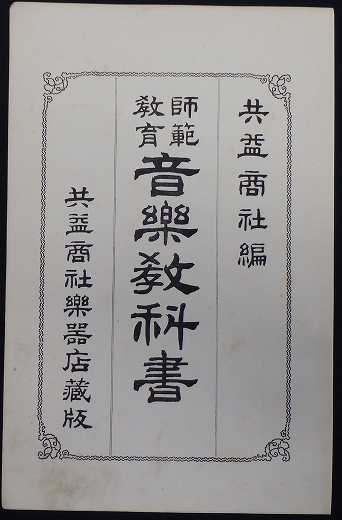 共益商社編
師範教育音樂教科書
共益商社樂器店藏版